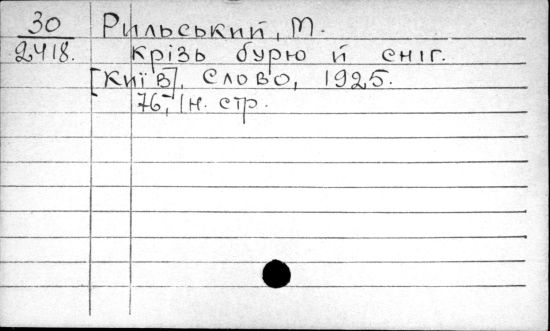 30 Рильський, М.
2418. крізь бурю й сніг.
[Київ], Слово, 1925.
76, 1н. стр.